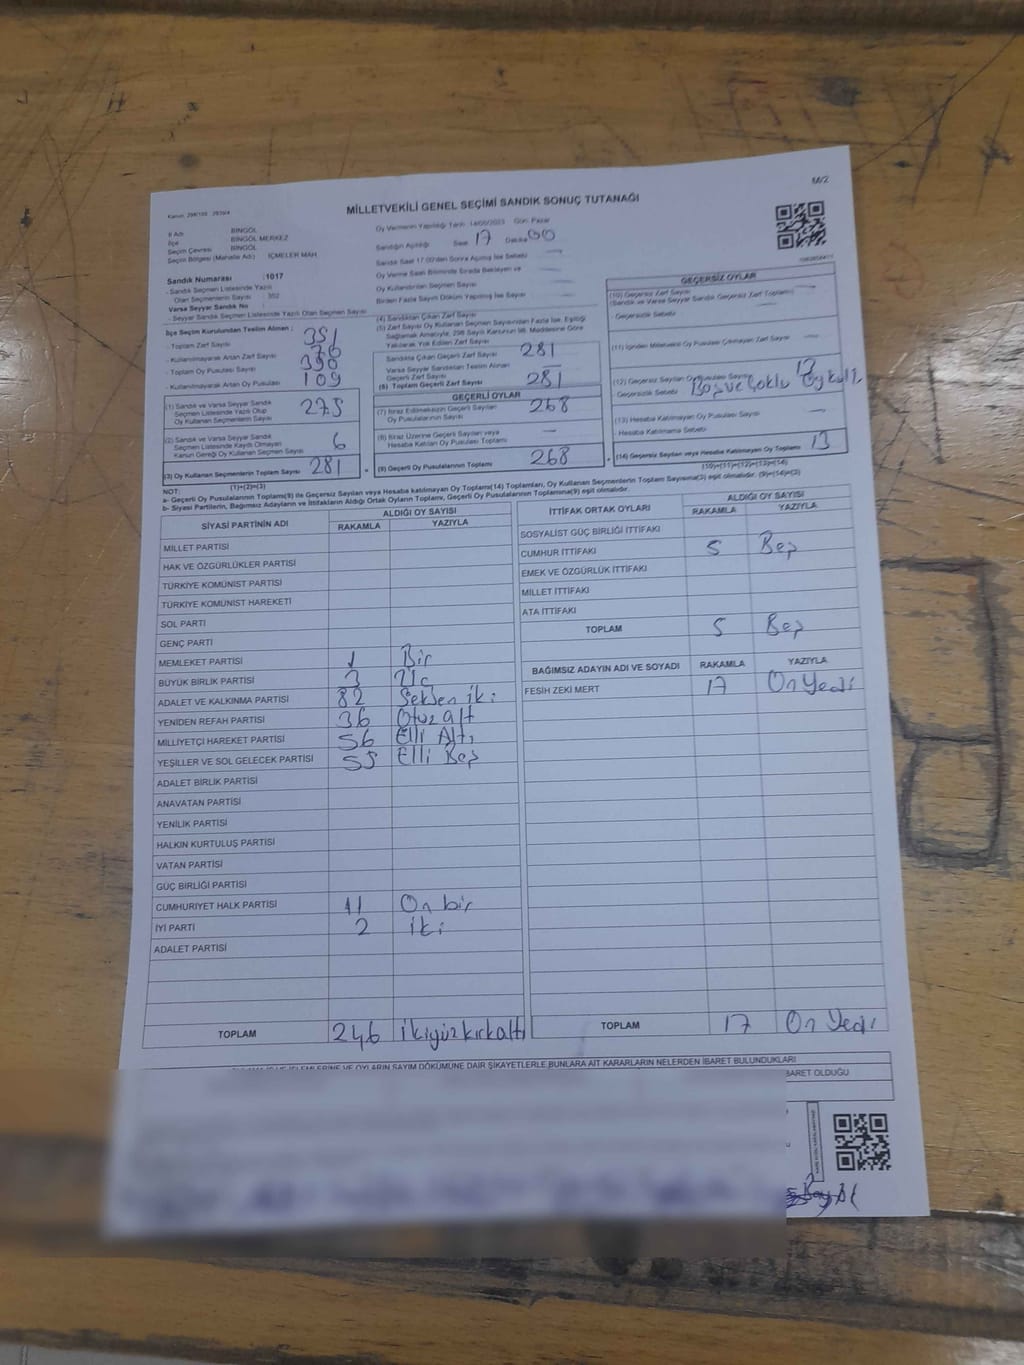 M/2
MİLLETVEKİLİ GENEL SEÇİMİ SANDIK SONUÇ TUTANAĞI
İl Adı BİNGÖL
İlçe BİNGÖL MERKEZ
Seçim Çevresi BİNGÖL
Seçim Bölgesi (Mahalle Adı) İÇMELER MAH.
Sandık Numarası :1017
- Sandık Seçmen Listesinde Yazılı
Olan Seçmenlerin Sayısı 352
Varsa Seyyar Sandık No :
- Seyyar Sandık Seçmen Listesinde Yazılı Olan Seçmen Sayısı
Oy Vermenin Yapıldığı Tarih 14/05/2023 Gün: Pazar
Sandığın Açıldığı Saat 17 Dakika 00
Sandık Saat 17:00'den Sonra Açılmış İse Sebebi
Oy Verme Saati Bitiminde Sırada Bekleyen ve
Oy Kullandırılan Seçmen Sayısı
Birden Fazla Sayım Döküm Yapılmış İse Sayısı
İlçe Seçim Kurulundan Teslim Alınan :
- Toplam Zarf Sayısı 351
- Kullanılmayarak Artan Zarf Sayısı 76
- Toplam Oy Pusulası Sayısı 390
- Kullanılmayarak Artan Oy Pusulası 109
(1) Sandık ve Varsa Seyyar Sandık
Seçmen Listesinde Yazılı Olup
Oy Kullanan Seçmenlerin Sayısı 275
(2) Sandık ve Varsa Seyyar Sandık
Seçmen Listesinde Kayıtlı Olmayan
Kanun Gereği Oy Kullanan Seçmen Sayısı 6
(3) Oy Kullanan Seçmenlerin Toplam Sayısı 281
(1)+(2)=(3)
(4) Sandıktan Çıkan Zarf Sayısı
(5) Zarf Sayısı Oy Kullanan Seçmen Sayısından Fazla İse, Eşitliği
Sağlamak Amacıyla, 298 Sayılı Kanunun 98. Maddesine Göre
Yakılarak Yok Edilen Zarf Sayısı
Sandıkta Çıkan Geçerli Zarf Sayısı 281
Varsa Seyyar Sandıktan Teslim Alınan
Geçerli Zarf Sayısı
(6) Toplam Geçerli Zarf Sayısı 281
GEÇERLİ OYLAR
(7) İtiraz Edilmeksizin Geçerli Sayılan
Oy Pusulalarının Sayısı 268
(8) İtiraz Üzerine Geçerli Sayılan veya
Hesaba Katılan Oy Pusulası Toplamı
(9) Geçerli Oy Pusulalarının Toplamı 268
GEÇERSİZ OYLAR
(10) Geçersiz Zarf Sayısı
(Sandık ve Varsa Seyyar Sandık Geçersiz Zarf Toplamı)
Geçersizlik Sebebi
(11) İçinden Milletvekili Oy Pusulası Çıkmayan Zarf Sayısı
(12) Geçersiz Sayılan Oy Pusulası Sayısı 13
Geçersizlik Sebebi Boş ve Çoklu Oy
(13) Hesaba Katılmayan Oy Pusulası Sayısı
Hesaba Katılmama Sebebi
(14) Geçersiz Sayılan veya Hesaba Katılmayan Oy Toplamı 13
(10)+(11)+(12)+(13)=(14)
NOT:
a- Geçerli Oy Pusulalarının Toplamı(9) ile Geçersiz Sayılan veya Hesaba katılmayan Oy Toplamı(14) Toplamları, Oy Kullanan Seçmenlerin Toplam Sayısına(3) eşit olmalıdır. (9)+(14)=(3)
b- Siyasi Partilerin, Bağımsız Adayların ve İttifakların Aldığı Ortak Oyların Toplamı, Geçerli Oy Pusulalarının Toplamına(9) eşit olmalıdır.
SİYASİ PARTİNİN ADI ALDIĞI OY SAYISI
RAKAMLA YAZIYLA
MİLLET PARTİSİ
HAK VE ÖZGÜRLÜKLER PARTİSİ
TÜRKİYE KOMÜNİST PARTİSİ
TÜRKİYE KOMÜNİST HAREKETİ
SOL PARTİ
GENÇ PARTİ
MEMLEKET PARTİSİ 1 Bir
BÜYÜK BİRLİK PARTİSİ 3 Üç
ADALET VE KALKINMA PARTİSİ 82 Seksen iki
YENİDEN REFAH PARTİSİ 36 Otuz altı
MİLLİYETÇİ HAREKET PARTİSİ 56 Elli Altı
YEŞİLLER VE SOL GELECEK PARTİSİ 55 Elli Beş
ADALET BİRLİK PARTİSİ
ANAVATAN PARTİSİ
YENİLİK PARTİSİ
HALKIN KURTULUŞ PARTİSİ
VATAN PARTİSİ
GÜÇ BİRLİĞİ PARTİSİ
CUMHURİYET HALK PARTİSİ 11 On bir
İYİ PARTİ 2 iki
ADALET PARTİSİ
TOPLAM 246 ikiyüzkırkaltı
İTTİFAK ORTAK OYLARI ALDIĞI OY SAYISI
RAKAMLA YAZIYLA
SOSYALİST GÜÇ BİRLİĞİ İTTİFAKI
CUMHUR İTTİFAKI 5 Beş
EMEK VE ÖZGÜRLÜK İTTİFAKI
MİLLET İTTİFAKI
ATA İTTİFAKI
TOPLAM 5 Beş
BAĞIMSIZ ADAYIN ADI VE SOYADI RAKAMLA YAZIYLA
FESİH ZEKİ MERT 17 On Yedi
TOPLAM 17 On Yedi
OYLARIN SAYIM DÖKÜMÜNE DAİR ŞİKAYETLERLE BUNLARA AİT KARARLARIN NELERDEN İBARET BULUNDUKLARI
İBARET OLDUĞU